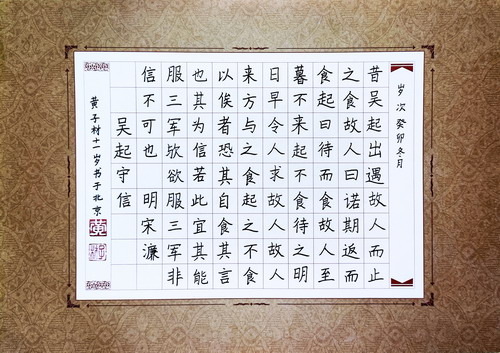 岁次癸卯冬月
昔吴起出遇故人而止
之食故人曰诺期返而
食起曰待而食故人至
暮不来起不食待之明
日早令人求故人故人
来方与之食起之不食
以俟者恐其自食其言
也其为信若此宜其能
服三军欤欲服三军非
信不可也 明 宋濂
吴起守信
黄子村十一岁书于北京